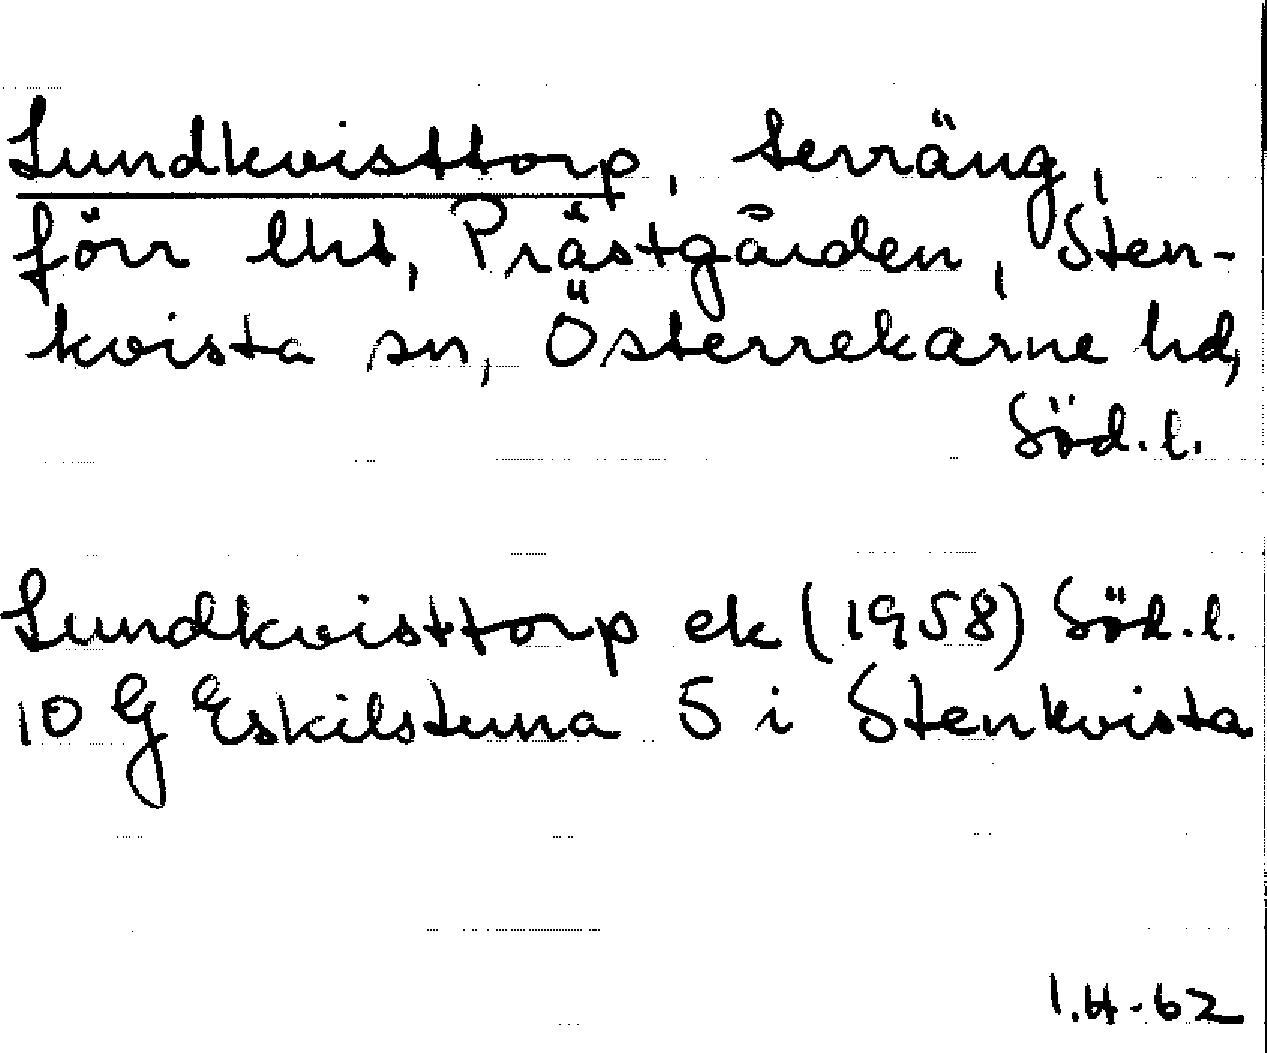 Lundkvisttorp, terräng,
förr lht, Prästgården, Sten-
kvista sn, Österrekarne hd,
Söd.l.
Lundkvisttorp ek (1958) Söd.l.
10 G Eskilstuna 5 i Stenkvista
I.H-62